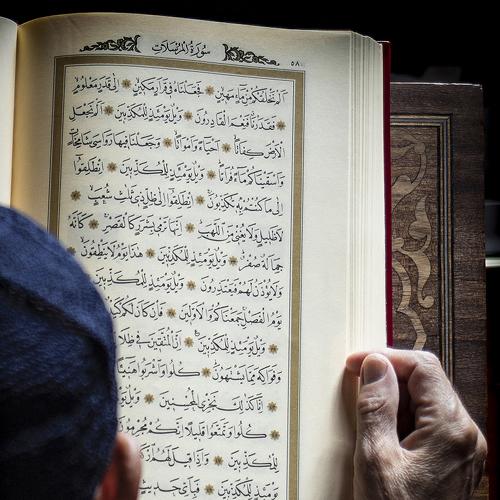 سورة المرسلات
٥٨٠
ألم نخلقكم من ماء مهين فجعلناه في قرار مكين إلى قدر معلوم
فقدرنا فنعم القادرون ويل يومئذ للمكذبين ألم نجعل
الأرض كفاتا أحياء وأمواتا وجعلنا فيها رواسي شامخات
وأسقيناكم ماء فراتا ويل يومئذ للمكذبين انطلقوا
إلى ما كنتم به تكذبون انطلقوا إلى ظل ذي ثلاث شعب
لا ظليل ولا يغني من اللهب إنها ترمي بشرر كالقصر كأنه
جمالة صفر ويل يومئذ للمكذبين هذا يوم لا ينطقون
ولا يؤذن لهم فيعتذرون ويل يومئذ للمكذبين
يوم الفصل جمعناكم والأولين فإن كان لكم كيد
ويل يومئذ للمكذبين إن المتقين في ظلا
وفواكه مما يشتهون كلوا واشربوا هنيئا
إنا كذلك نجزي المحسنين ويل يو
كلوا وتمتعوا قليلا إنكم مجرمون
للمكذبين وإذا قيل لهم اركع
يومئذ للمكذبين فبأي حديث